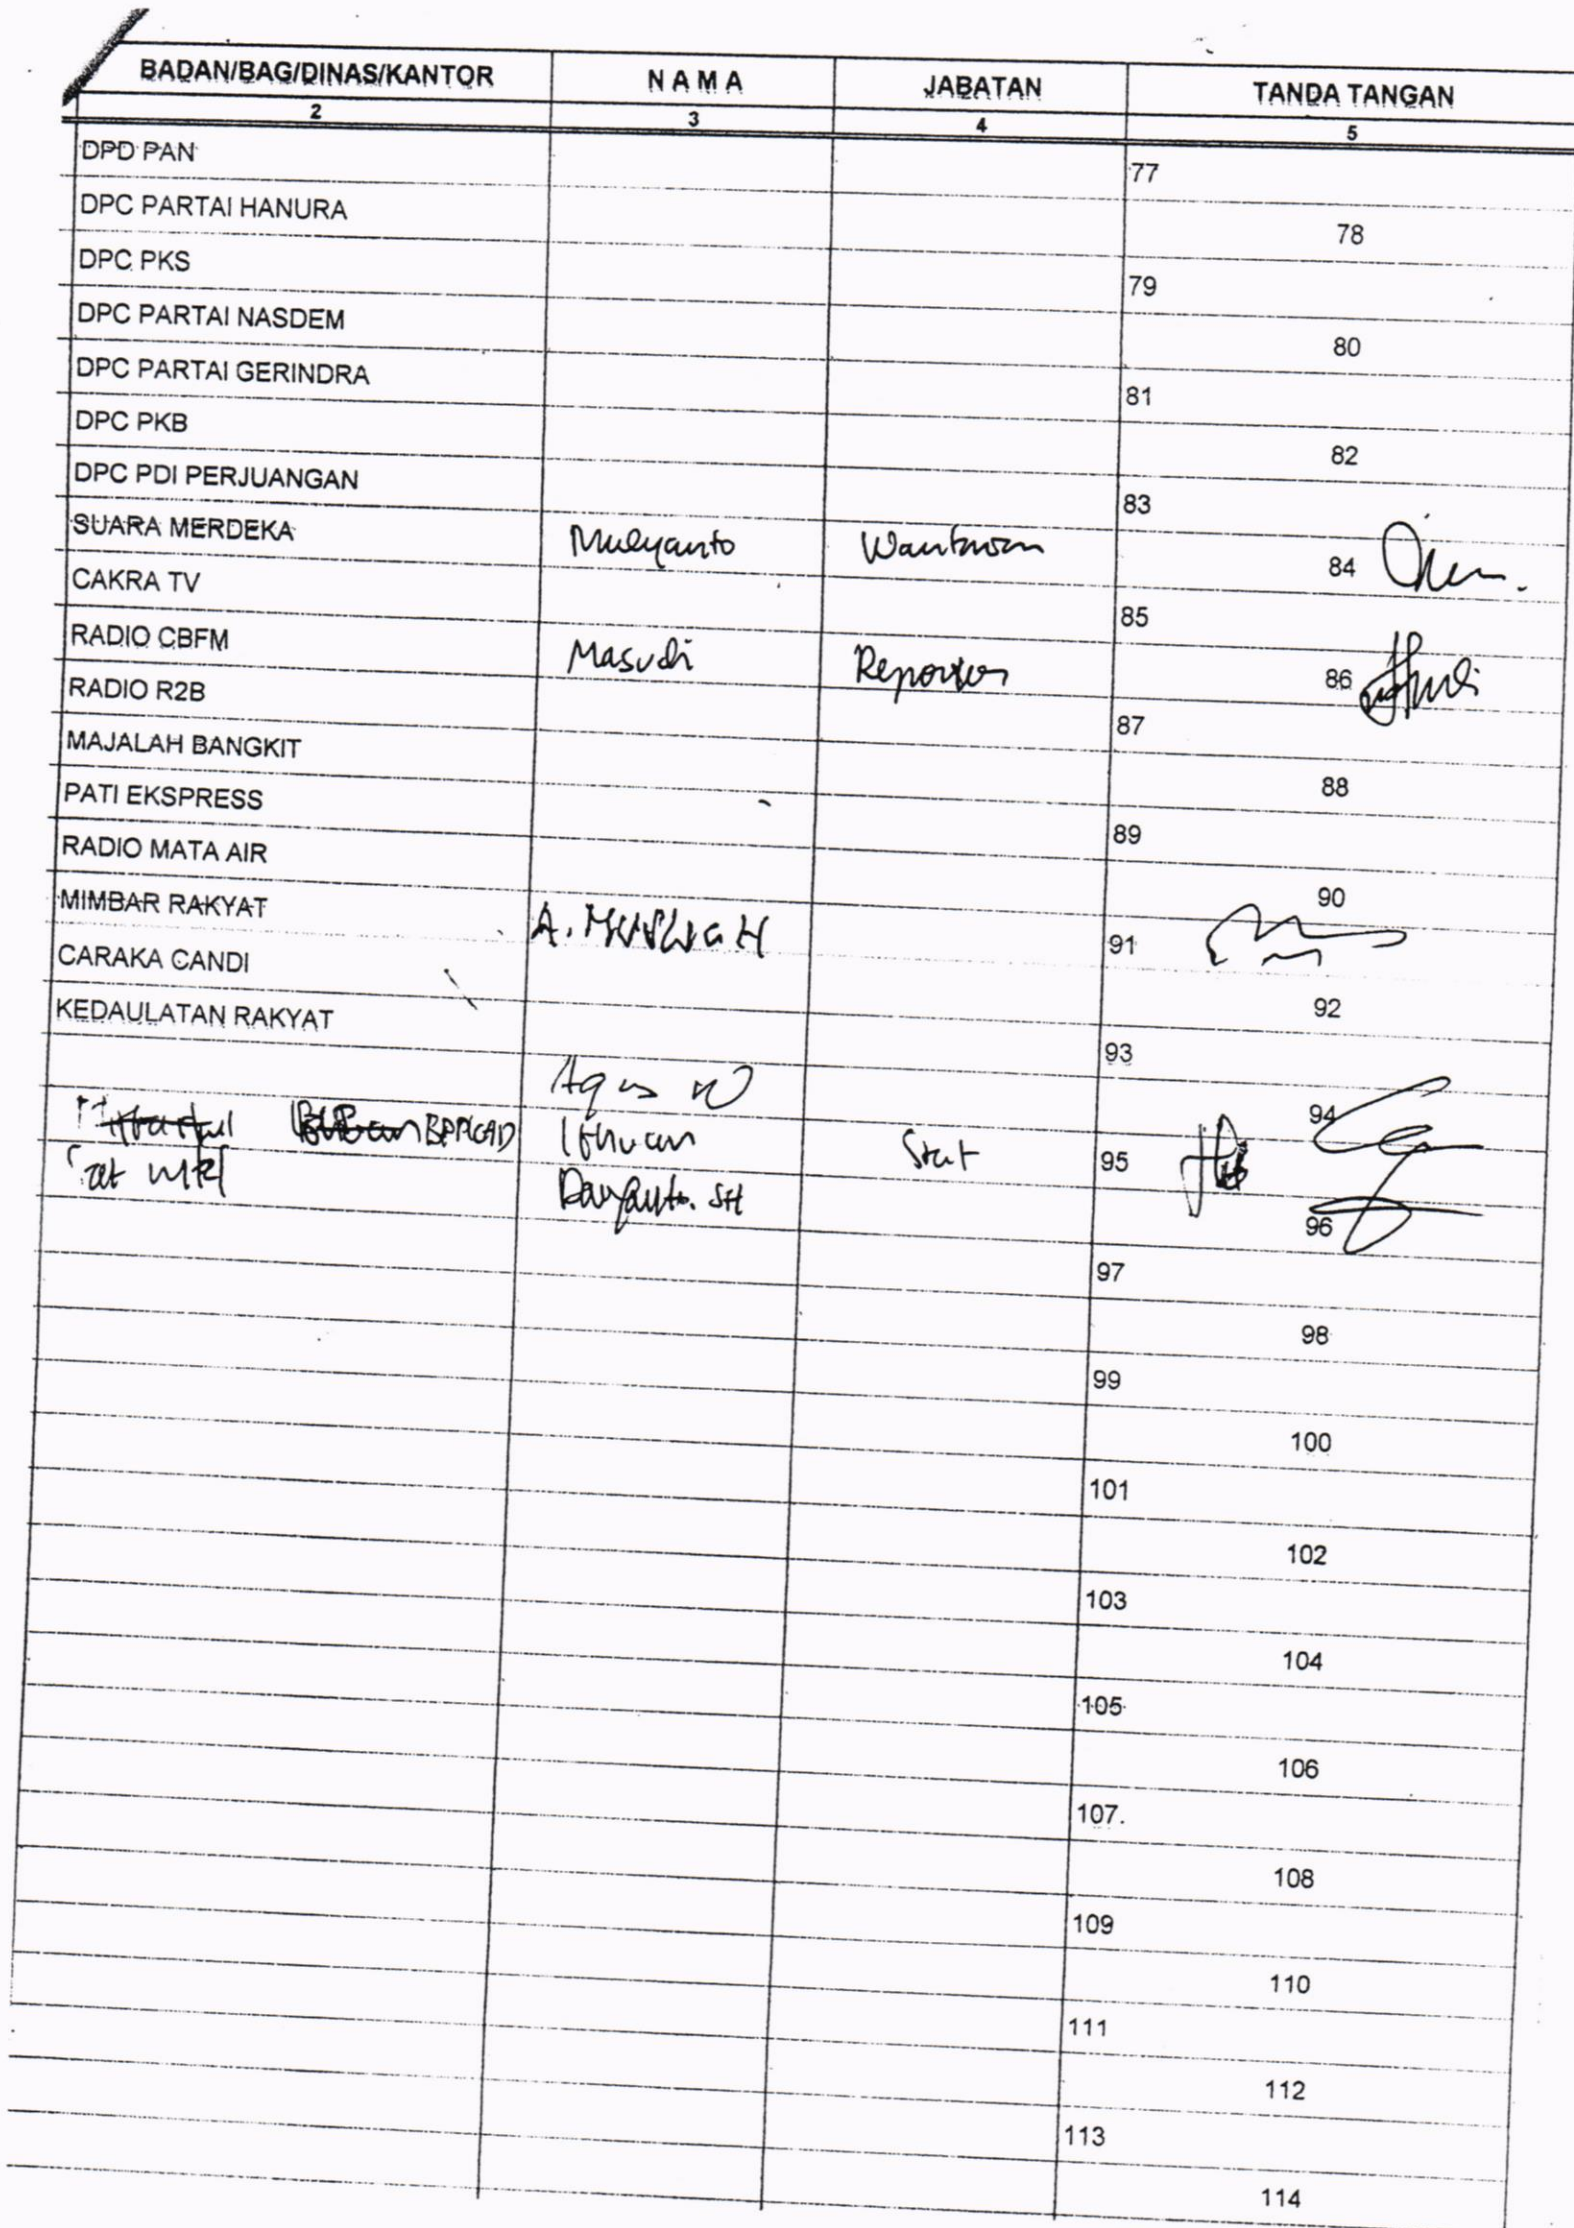 BADAN/BAG/DINAS/KANTOR N A M A JABATAN TANDA TANGAN
2 3 4 5
DPD PAN 77
DPC PARTAI HANURA 78
DPC PKS 79
DPC PARTAI NASDEM 80
DPC PARTAI GERINDRA 81
DPC PKB 82
DPC PDI PERJUANGAN 83
SUARA MERDEKA Mulyanto Wartawan 84
CAKRA TV 85
RADIO CBFM Masudi Reporter 86
RADIO R2B 87
MAJALAH BANGKIT 88
PATI EKSPRESS 89
RADIO MATA AIR 90
MIMBAR RAKYAT A. 91
CARAKA CANDI 92
KEDAULATAN RAKYAT 93
Agus W 94
95
Daryanto. SH 96
97
98
99
100
101
102
103
104
105
106
107.
108
109
110
111
112
113
114